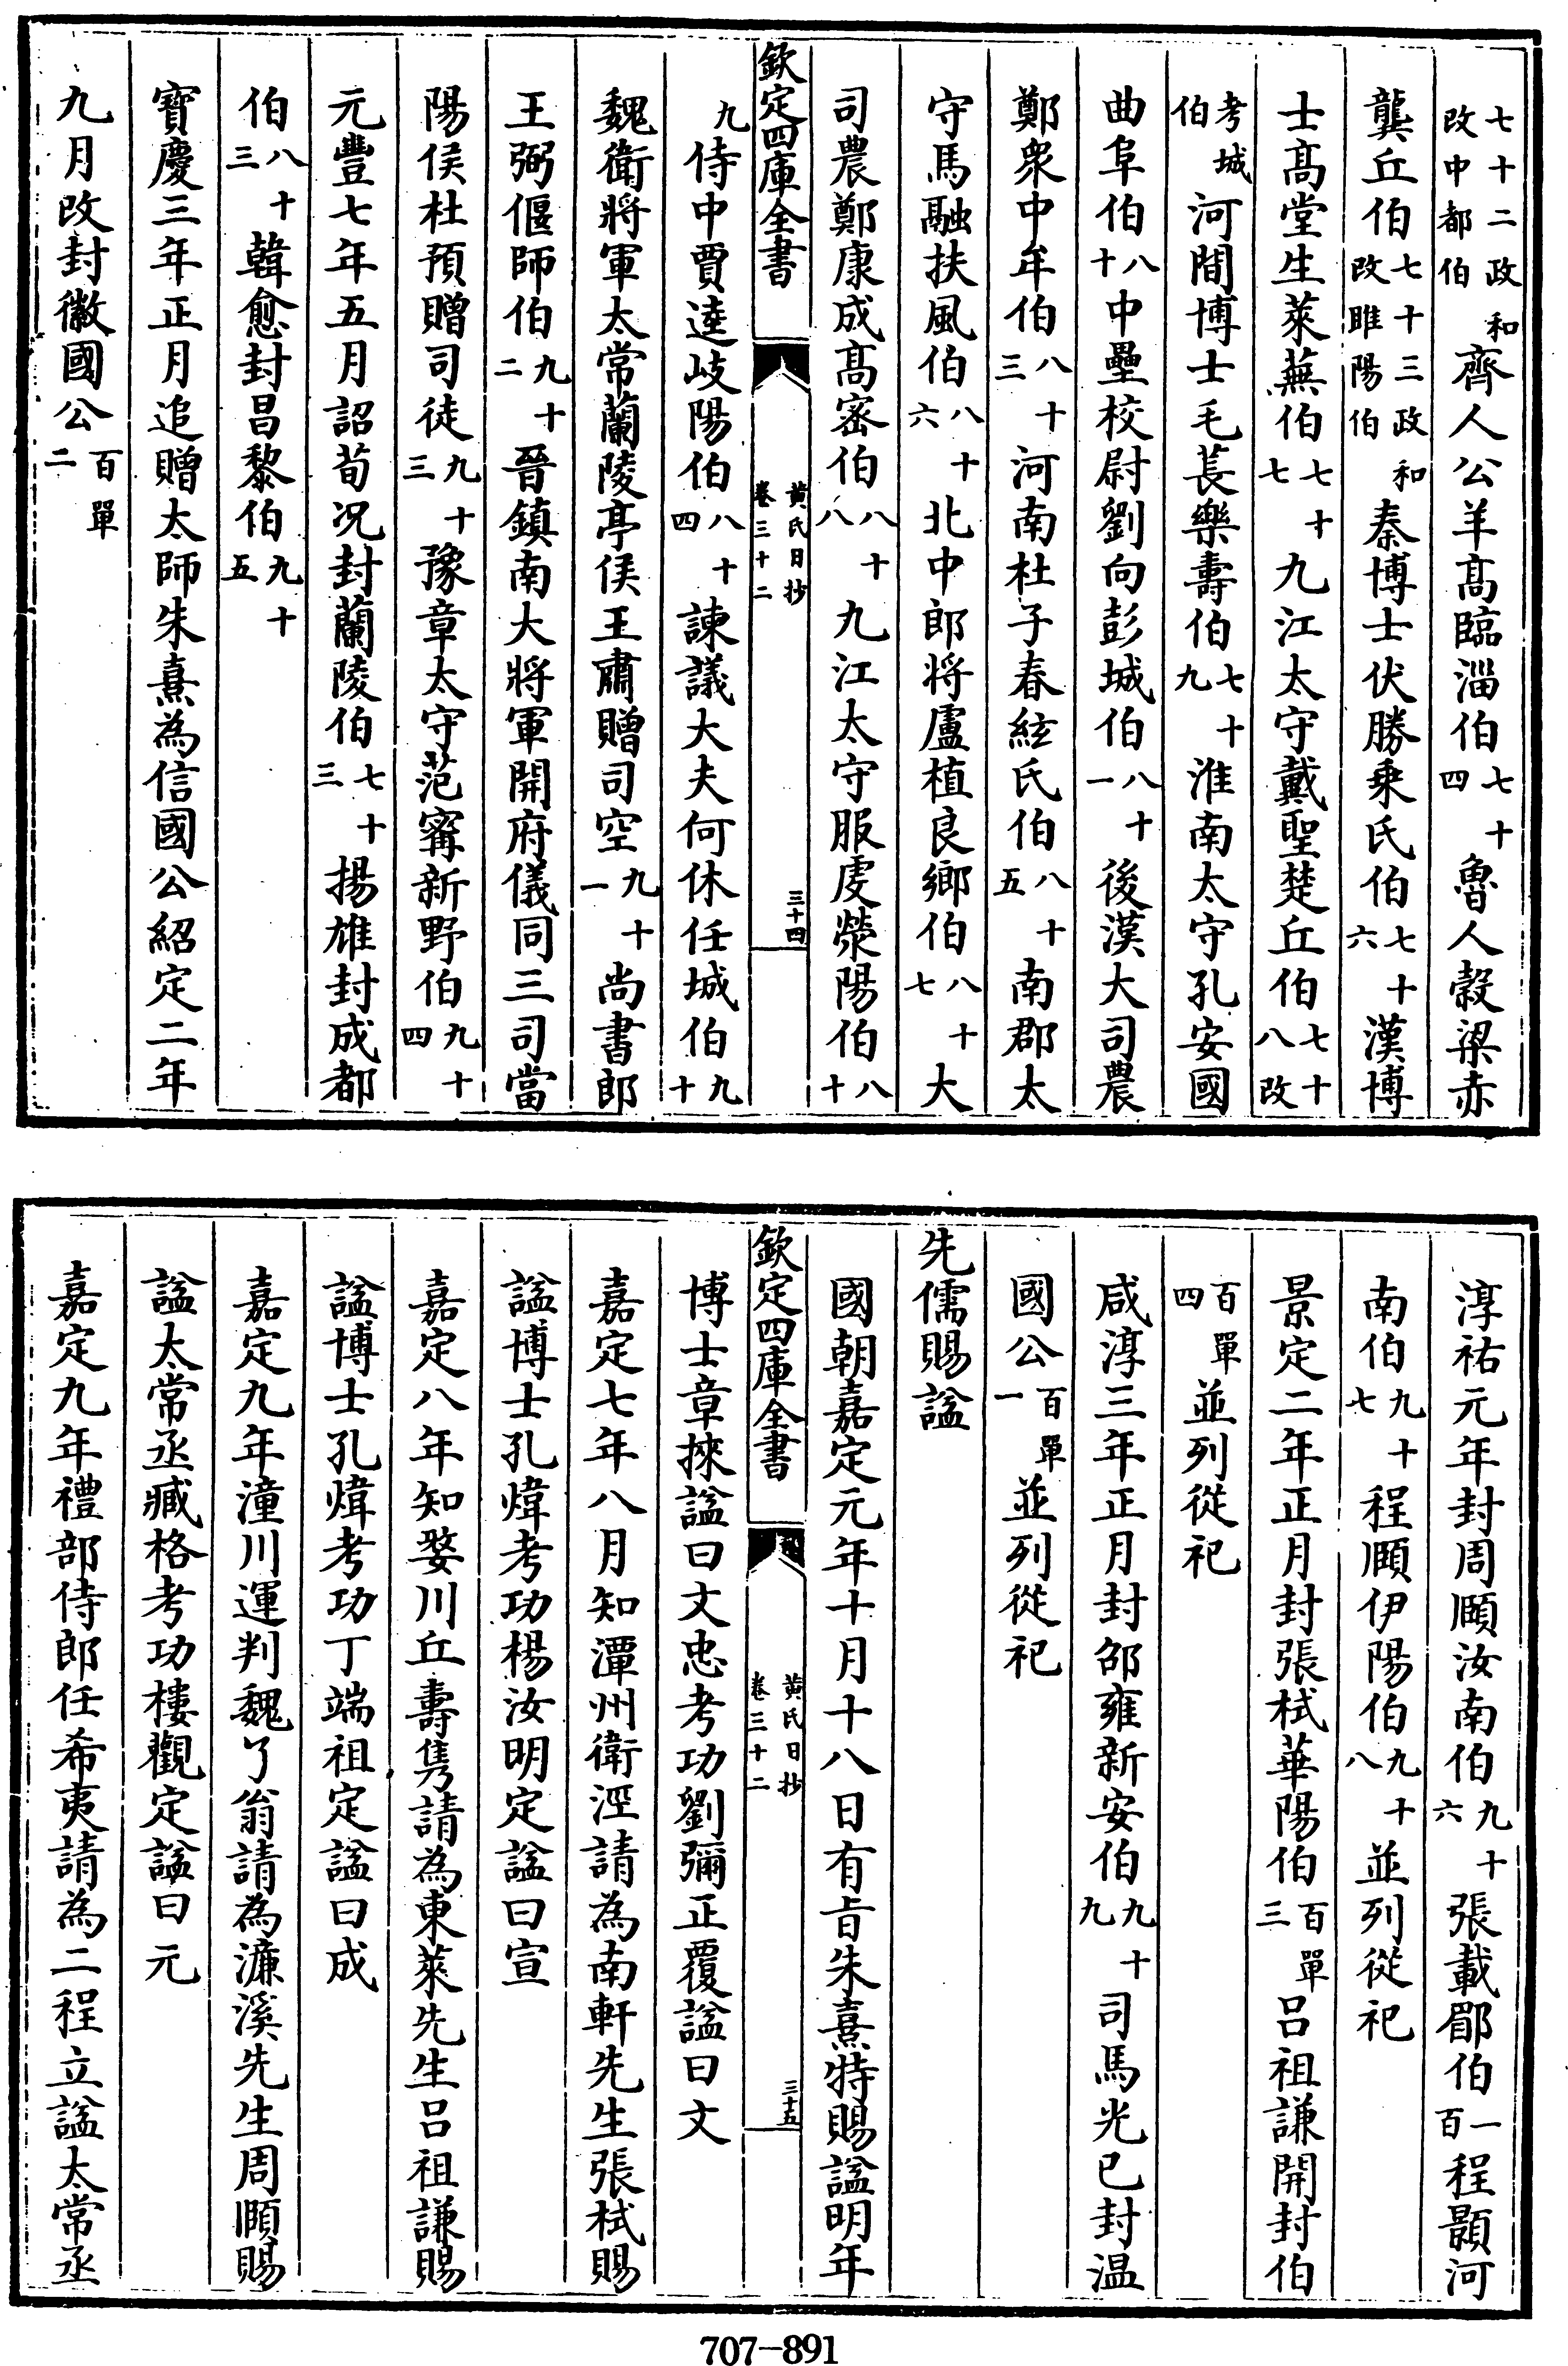 七十二政和改中都伯齊人公羊髙臨淄伯七十四魯人穀梁赤
龔丘伯七十三政和改睢陽伯秦博士伏勝乗氏伯七十六漢博
士髙堂生萊蕪伯七十七九江太守戴聖楚丘伯七十八改
考城伯河間博士毛萇樂壽伯七十九淮南太守孔安國
曲阜伯八十中壘校尉劉向彭城伯八十一後漢大司農
鄭衆中牟伯八十三河南杜子春緱氏伯八十五南郡太
守馬融扶風伯八十六北中郎将盧植良鄉伯八十七大
司農鄭康成髙宻伯八十八九江太守服虔滎陽伯八十
欽定四庫全書
黄氏日抄
卷三十二
三十四
九侍中賈逵岐陽伯八十四諫議大夫何休任城伯九十
魏衛將軍太常蘭陵亭侯王肅贈司空九十一尚書郎
王弼偃師伯九十二晉鎮南大將軍開府儀同三司當
陽侯杜預贈司徒九十三豫章太守范寗新野伯九十四
元豐七年五月詔荀况封蘭陵伯七十三揚雄封成都
伯八十三韓愈封昌黎伯九十五
寳慶三年正月追贈太師朱熹為信國公紹定二年
九月改封徽國公百單二
淳祐元年封周頤汝南伯九十六張載郿伯一百程顥河
南伯九十七程頤伊陽伯九十八並列從祀
景定二年正月封張栻華陽伯百單三呂祖謙開封伯
百單四並列從祀
咸淳三年正月封邵雍新安伯九十九司馬光已封温
國公百單一並列從祀
先儒賜諡
國朝嘉定元年十月十八日有旨朱熹特賜諡明年
欽定四庫全書
黄氏日抄
卷三十二
三十五
博士章捸諡曰文忠考功劉彌正覆諡曰文
嘉定七年八月知潭州衛涇請為南軒先生張栻賜
諡博士孔煒考功楊汝明定諡曰宣
嘉定八年知婺川丘壽雋請為東萊先生吕祖謙賜
諡博士孔煒考功丁端祖定諡曰成
嘉定九年潼川運判魏了翁請為濂溪先生周頤賜
諡太常丞臧格考功樓觀定諡曰元
嘉定九年禮部侍郎任希夷請為二程立諡太常丞
707-891